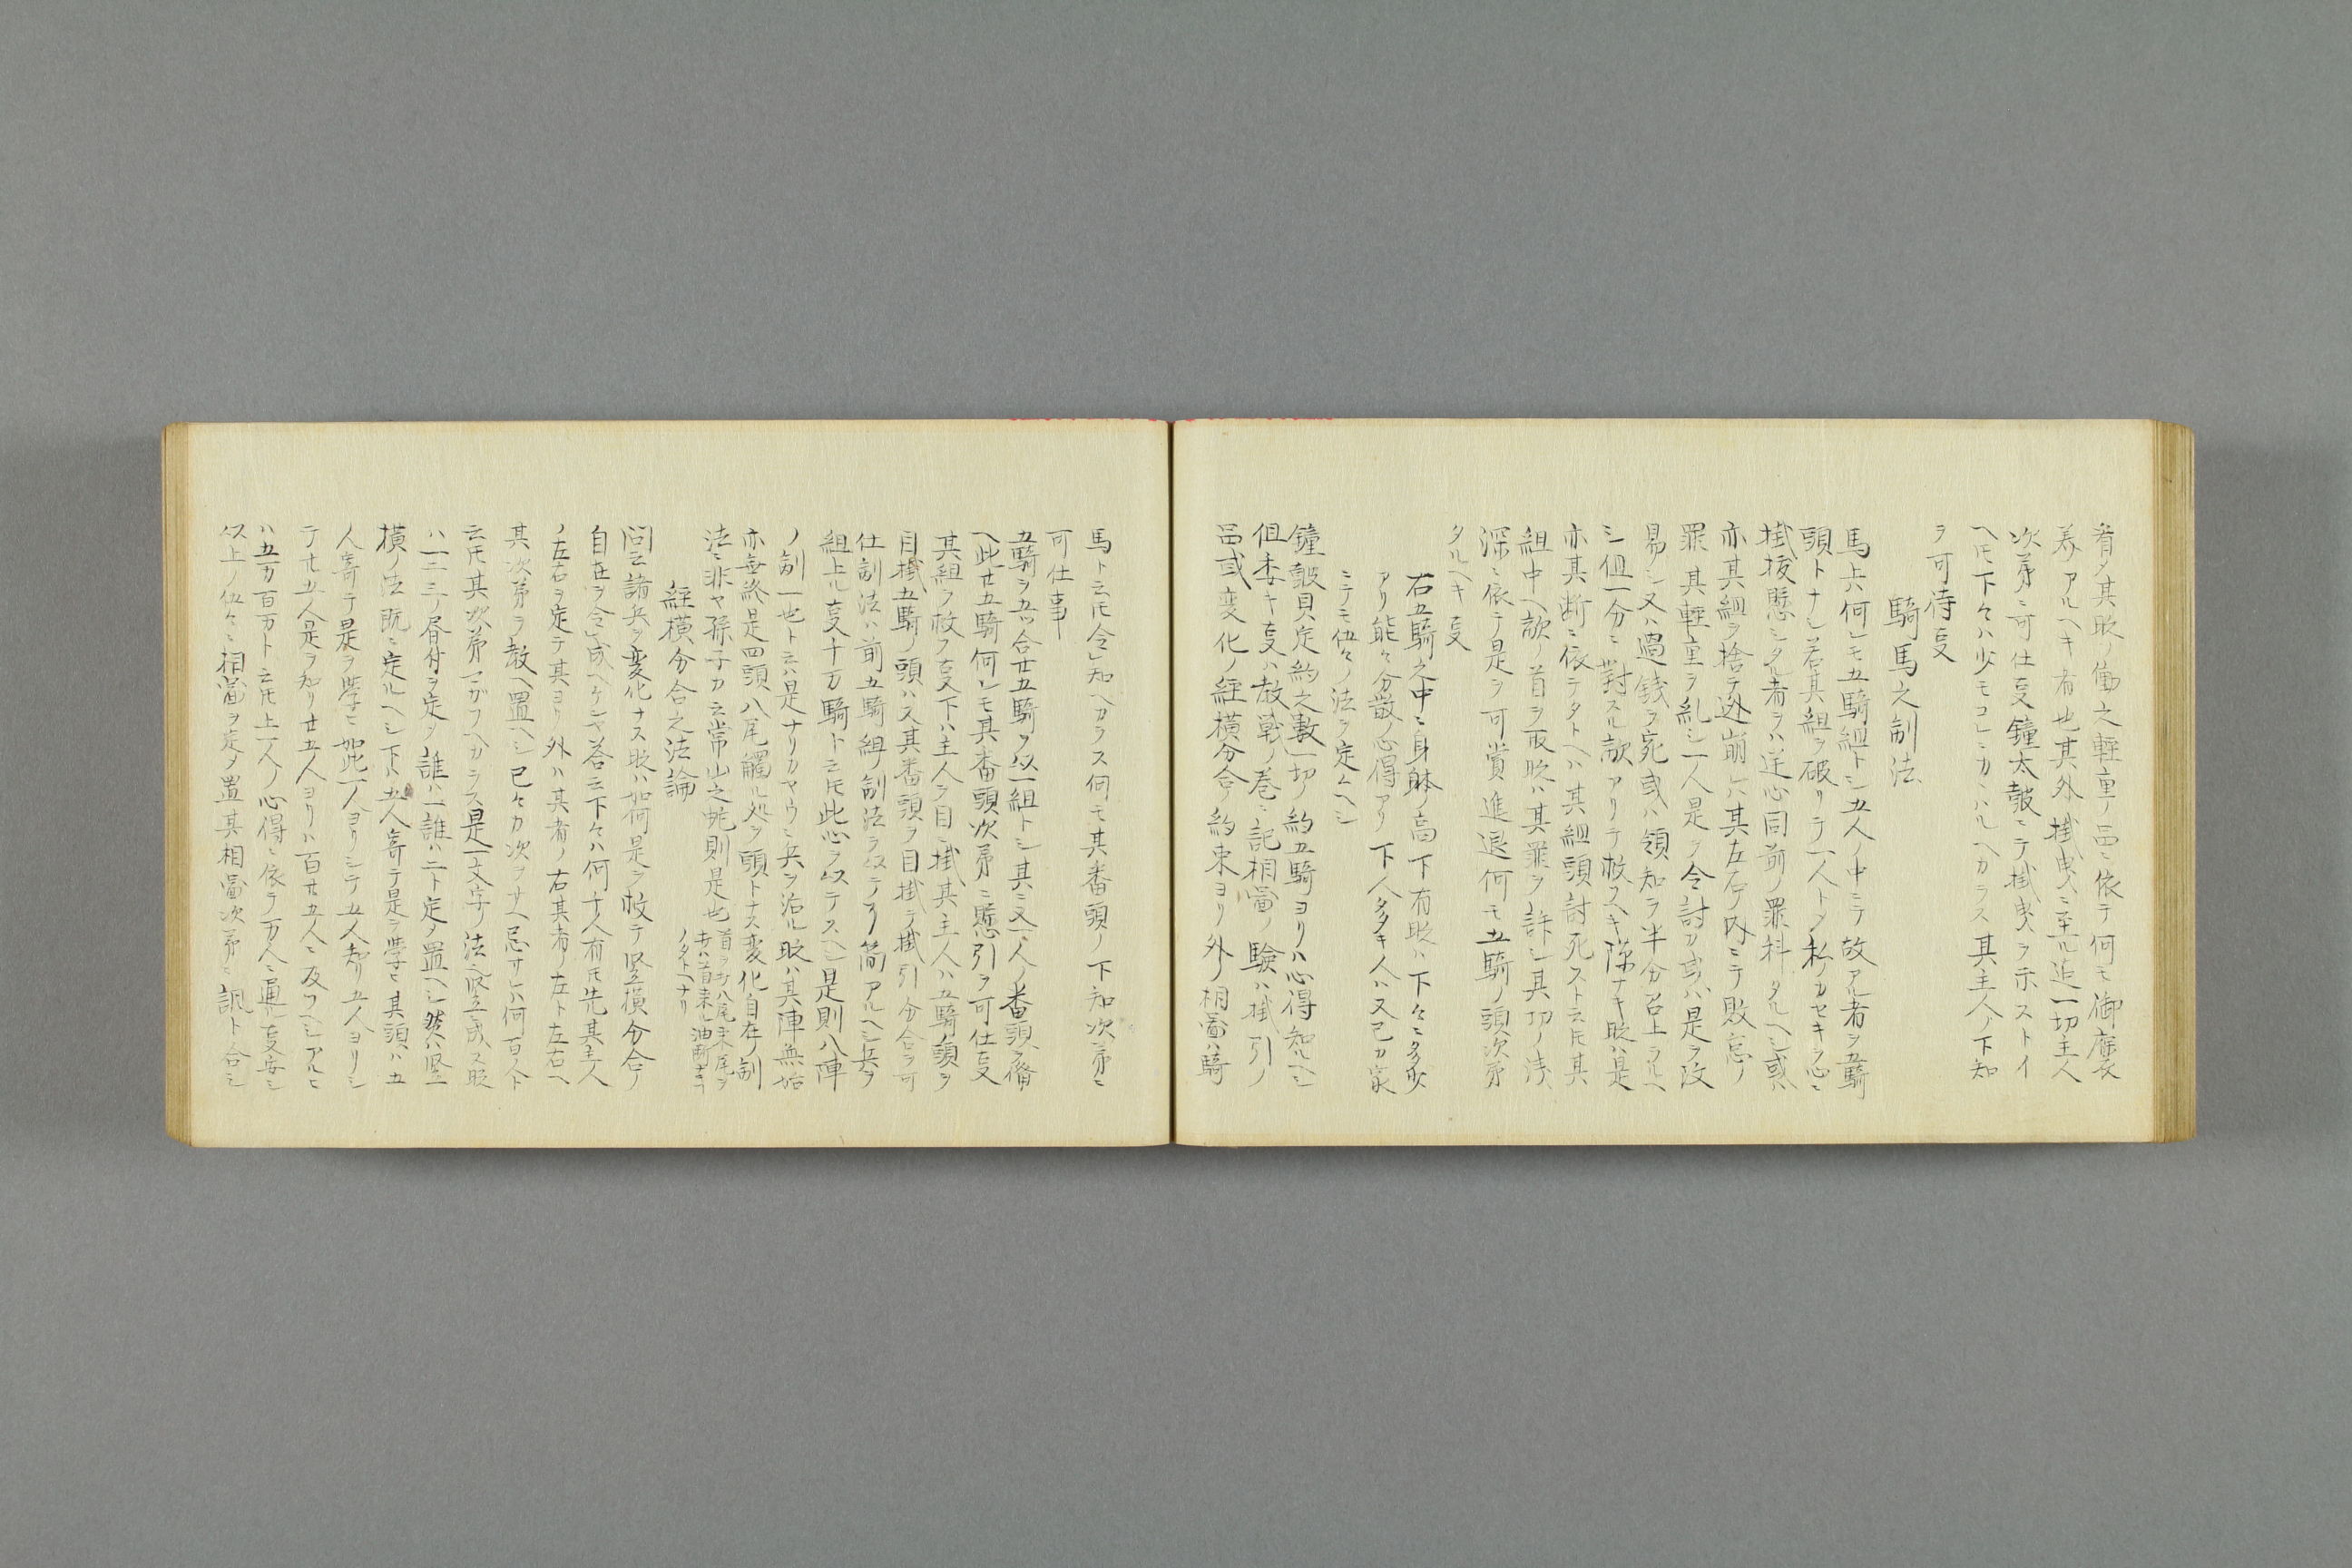 者〆其敗ノ働之軽重ノ品ニ依テ何モ御座衣
養アルヘキ者也其外掛曳ニ至ル迠一切主人
次第ニ可仕叓鐘太皷ニテ掛曳ヲ示ストイ
ヘ𪜈下々ハ少モコレニカヽハルヘカラス其主人ノ下知
ヲ可待叓
騎馬之制法
馬兵何レモ五騎組トシ五人ノ中ニテ故アル者ヲ五騎
頭トナシ若其組ヲ破リテ一人トメ私ノカセキヲ心ニ
掛抜懸シタル者ヲハ逆心同前ノ罪科タルヘシ或ハ
亦其組ヲ捨テ逃崩レハ其左右ノ内ニテ敗忘ノ
罪其軽重ヲ糺シ一人是ヲ令討カ或ハ是ヲ改
易シ又ハ過銭ヲ宛或ハ領知ヲ半分召上ラルヘ
シ但一分ニ對スル敵アリテ救フヘキ隙ナキ時ハ是
亦其断ニ依テタトヘハ其組頭討死スト云𪜈其
組中ヘ敵ノ首ヲ取時ハ其罪ヲ許シ其功ノ浅
深ニ依テ是ヲ可賞進退何モ五騎ノ頭次第
タルヘキ叓
右五騎之中ニ身躰ノ高下有時ハ下々ニ多少
アリ能々分散ノ心得アリ下人タタキ人ハ又己カ家
ニテモ伍々ノ法ヲ定ムヘシ
鐘皷貝定約之數一切ノ約五騎ヨリハ心得知ルヘシ
但委キ叓ハ教戦ノ巻ニ記相圖ノ験ハ掛引ノ
品或変化ノ經横分合ノ約束ヨリ外ノ相圖ハ騎
馬ト云𪜈令レ知ヘカラス何モ其番頭ノ下知次第ニ
可仕事
五騎ヲ五ツ合廿五騎ヲ以一組トシ其ニ又一人ノ番頭ヲ備
ヘ此廿五騎何レモ其番頭次第ニ懸引ヲ可仕叓
其組ヲ救フ叓下ハ主人ヲ目ニ掛其主人ハ五騎頭ヲ
目掛五騎ノ頭ハ又其番頭ヲ目掛テ掛引分合ヲ可
仕制法ハ前五騎組ノ制法ヲ以テ了簡アルヘシ兵ヲ
組上ル叓十万騎ト云𪜈此心ヲ以テスヘシ是則八陣
ノ制一也ト云ハ是ナリカヤウニ兵ヲ治ル時ハ其陣無始
亦無終是四頭八尾觸ル処ヲ頭トナス変化自在ノ制
法ニ非ヤ孫子カ云常山之虵則是也首ヲ打ハ尾来尾ヲ
打ハ首来ル油断ナキ
ノタトヘナリ
經横分合之法論
問云諸兵ヲ変化ナス時ハ如何是ヲ教テ竪横分合ノ
自在ヲ令レ成ヘケンヤ答云下々ハ何十人有𪜈先其主人
ノ左右ヲ定テ其ヨリ外ハ其者ノ右其者ノ左ト左右ヘ
其次第ヲ教ヘ置ヘシ己々カ次ヲサヘ忘サレハ何百人ト
云𪜈其次第マガフヘカラス是一文字ノ法也竪ニ成ス時
ハ一二三ノ層付ヲ定メ誰ハ一誰ハ二ト定メ置ヘシ然ハ竪
横ノ法既ニ定ルヘシ下ハ五人寄テ是ヲ学ヒ其頭ハ五
人寄テ是ヲ学ヒ如此一人ヨリシテ五人知リ五人ヨリシ
テ廿五人是ヲ知リ廿五人ヨリハ百廿五人ニ及フヘシアルヒ
ハ五万百万ト云𪜈上一人ノ心得ニ依テ万人ニ通ル叓安シ
以上ノ伍々ニ相圖ヲ定メ置其相圖次第ニ調ト合シ